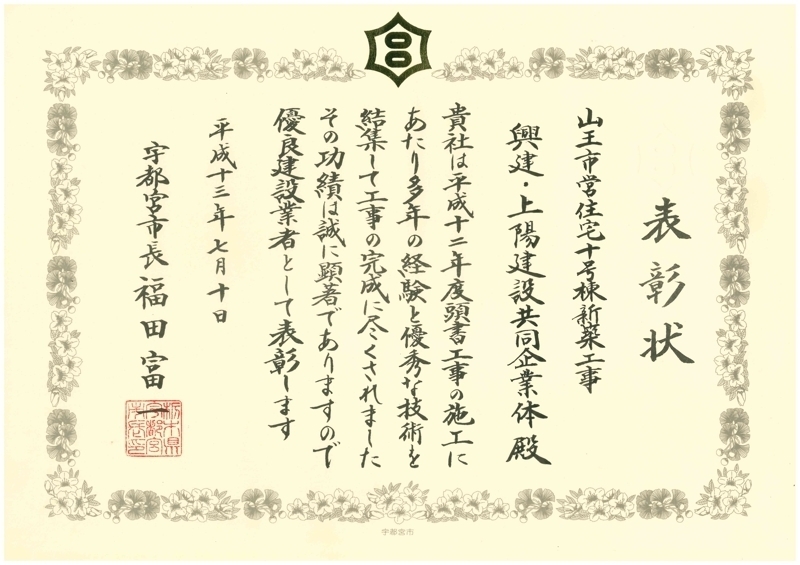 表彰状
山王市営住宅十号棟新築工事
興建・上陽建設共同企業体殿
貴社は平成十二年度頭書工事の施工に
あたり多年の経験と優秀な技術を
結集して工事の完成に尽くされました
その功績は誠に顕著でありますので
優良建設業者として表彰します
平成十三年七月十日
宇都宮市長福田富一
栃木県宇都宮市長印
宇都宮市